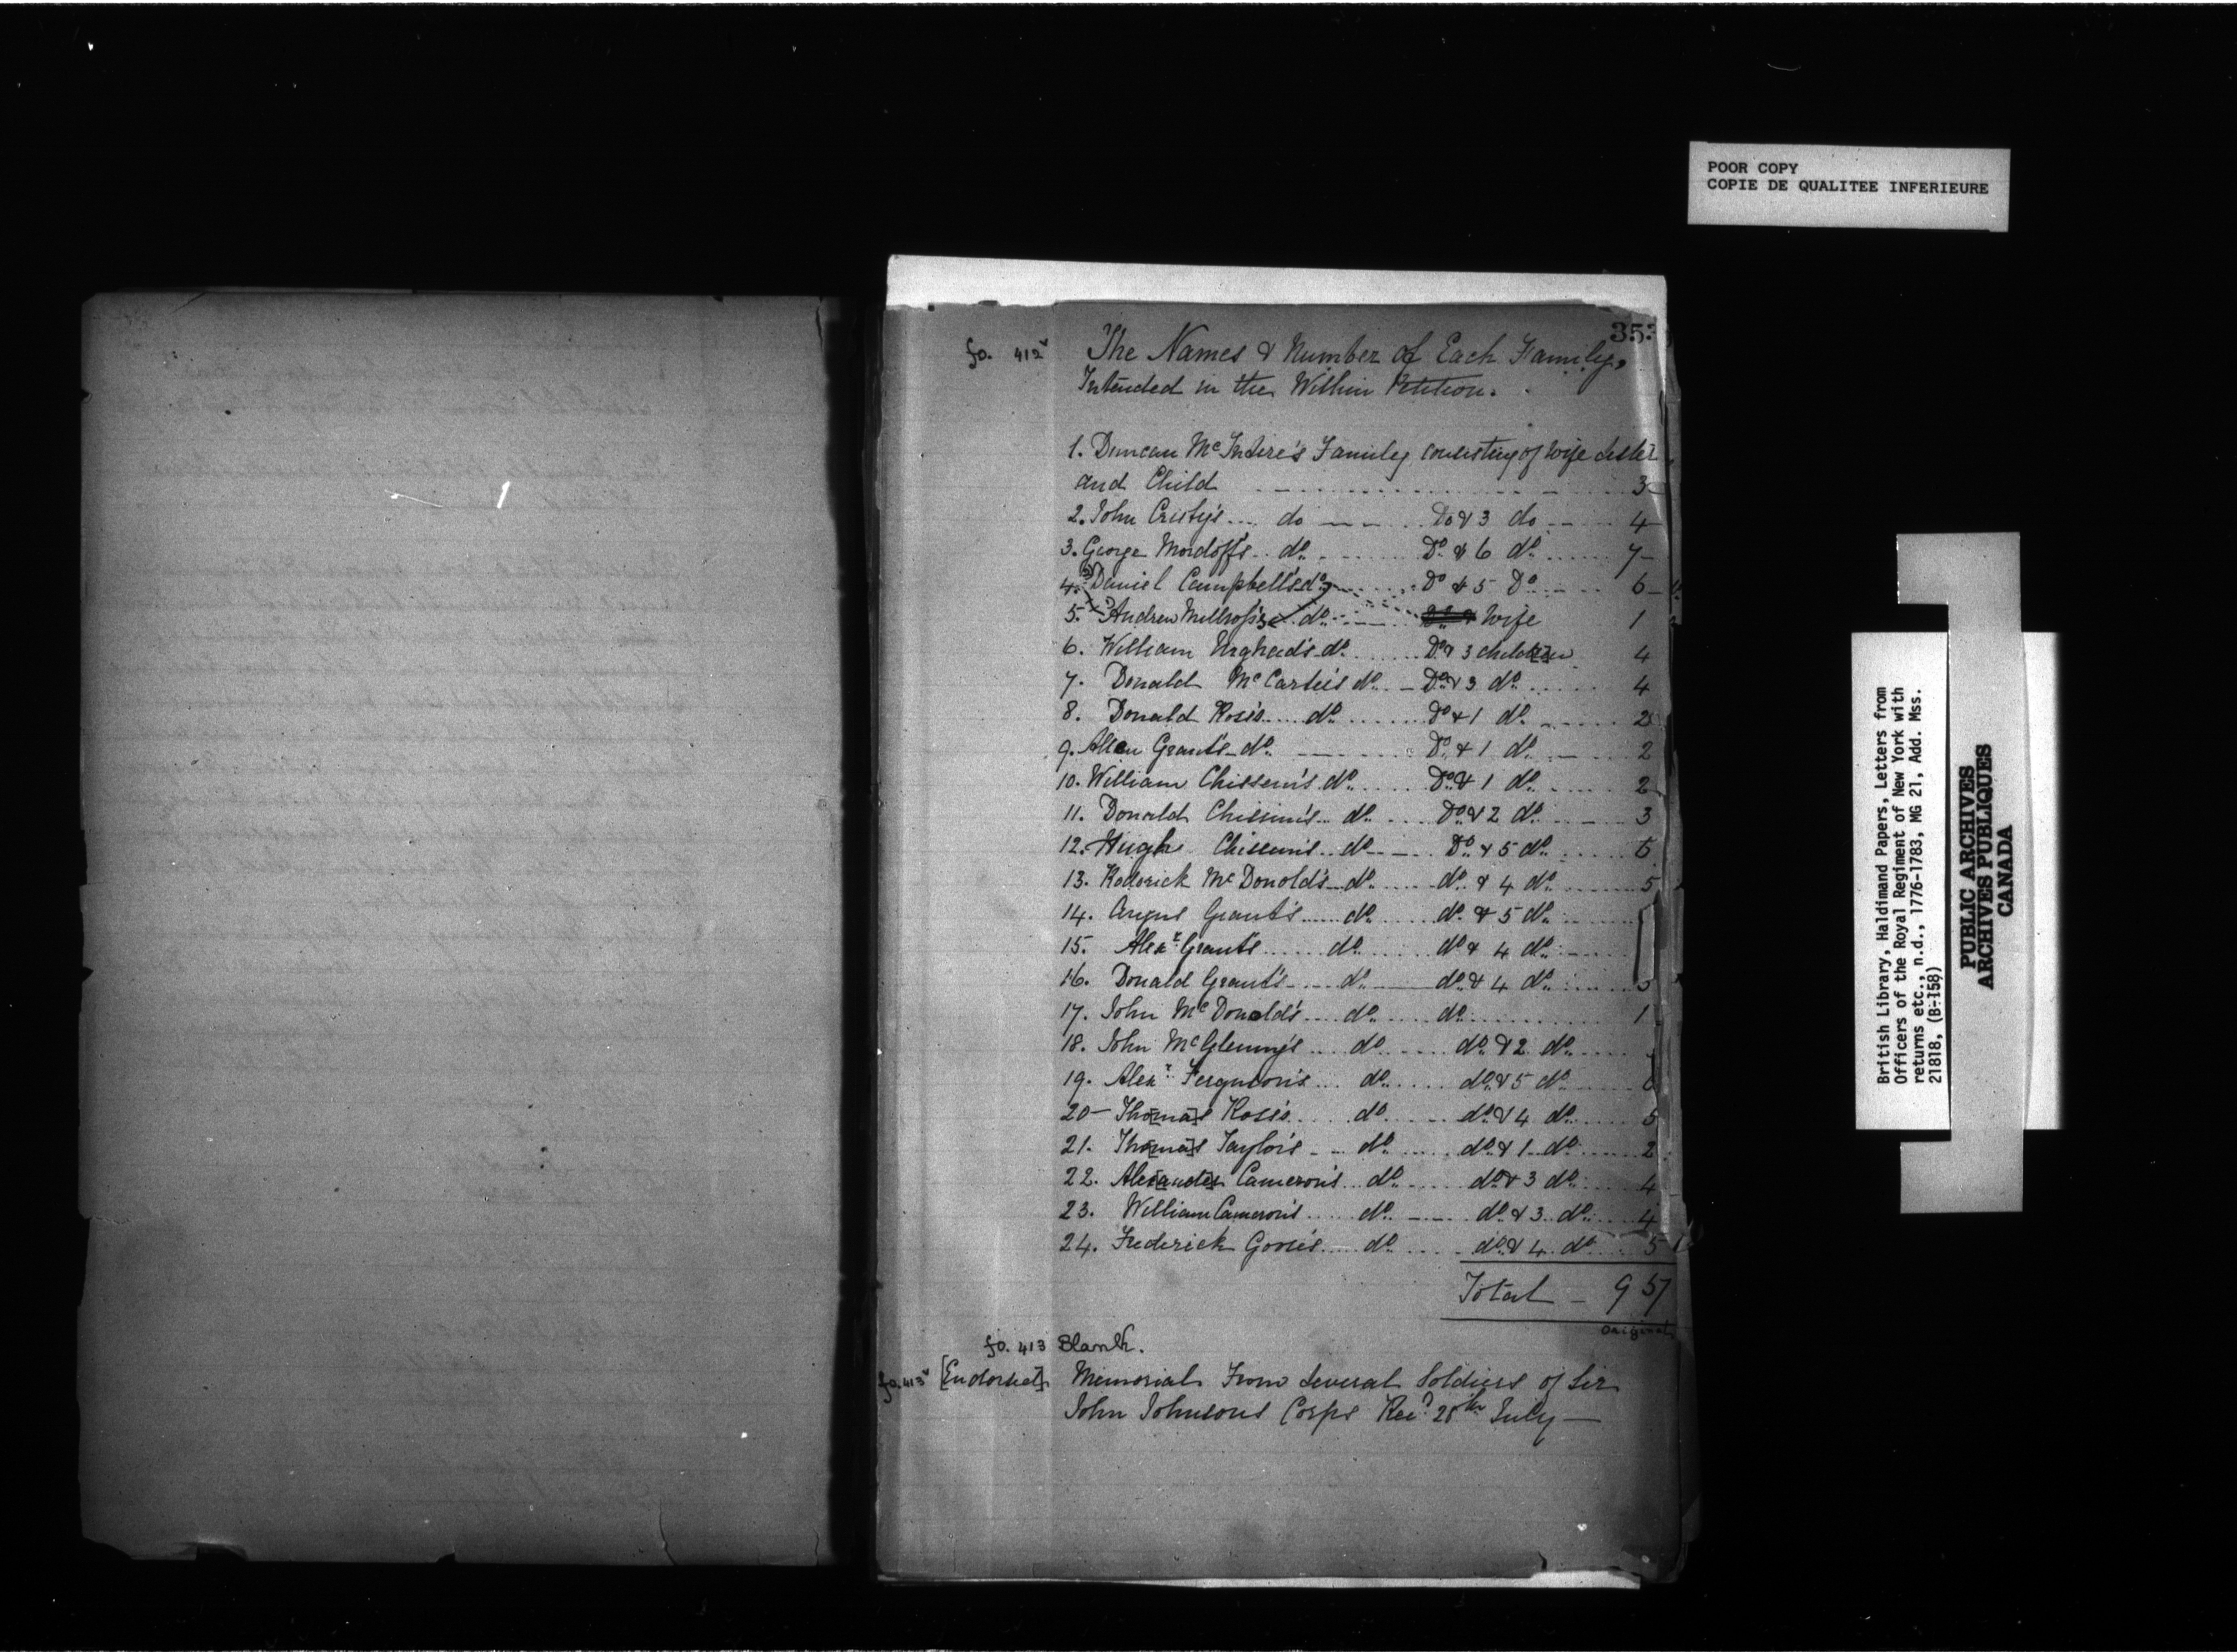 POOR COPY
COPIE DE QUALITEE INFERIEURE
353
fo. 412v The Names & Number of Each Family,
Intended in the Within Petition.
1. Duncan McIntire's Family consisting of wife Sister
and Child 3
2. John Cristy's do Do & 3 do 4
3. George Mordoff's do Do & 6 do 7
4. Daniel Campbell's do Do & 5 Do 6
5. Andrew Millross's do wife 1
6. William Urghad's do Do & 3 children 4
7. Donald McCarter's do Do & 3 do 4
8. Donald Ross's do Do & 1 do 2
9. Allen Grant's do Do & 1 do 2
10. William Chissem's do Do & 1 do 2
11. Donald Chissem's do Do & 2 do 3
12. Hugh Chissem's do Do & 5 do 6
13. Roderick McDonold's do do & 4 do 5
14. Angus Grant's do do & 5 do
15. Alexr Grant's do do & 4 do
16. Donald Grant's do do & 4 do 5
17. John McDonald's do do 1
18. John McGlenny's do do & 2 do
19. Alexr Ferguson's do do & 5 do 6
20 Tho[ma]s Ross's do do & 4 do 5
21. Tho[ma]s Taylor's do do & 1 do 2
22. Alexander Cameron's do do & 3 do 4
23. William Cameron's do do & 3 do 4
24. Frederick Goose's do do & 4 do 5
Total 957
Original
fo. 413 Blank.
fo. 413v [Endorsed] Memorial From several Soldiers of Sir
John Johnsons Corps Recd 28th July
British Library, Haldimand Papers, Letters from
Officers of the Royal Regiment of New York with
returns etc., n.d., 1776-1783, MG 21, Add. Mss.
21818, (B-158)
PUBLIC ARCHIVES
ARCHIVES PUBLIQUES
CANADA